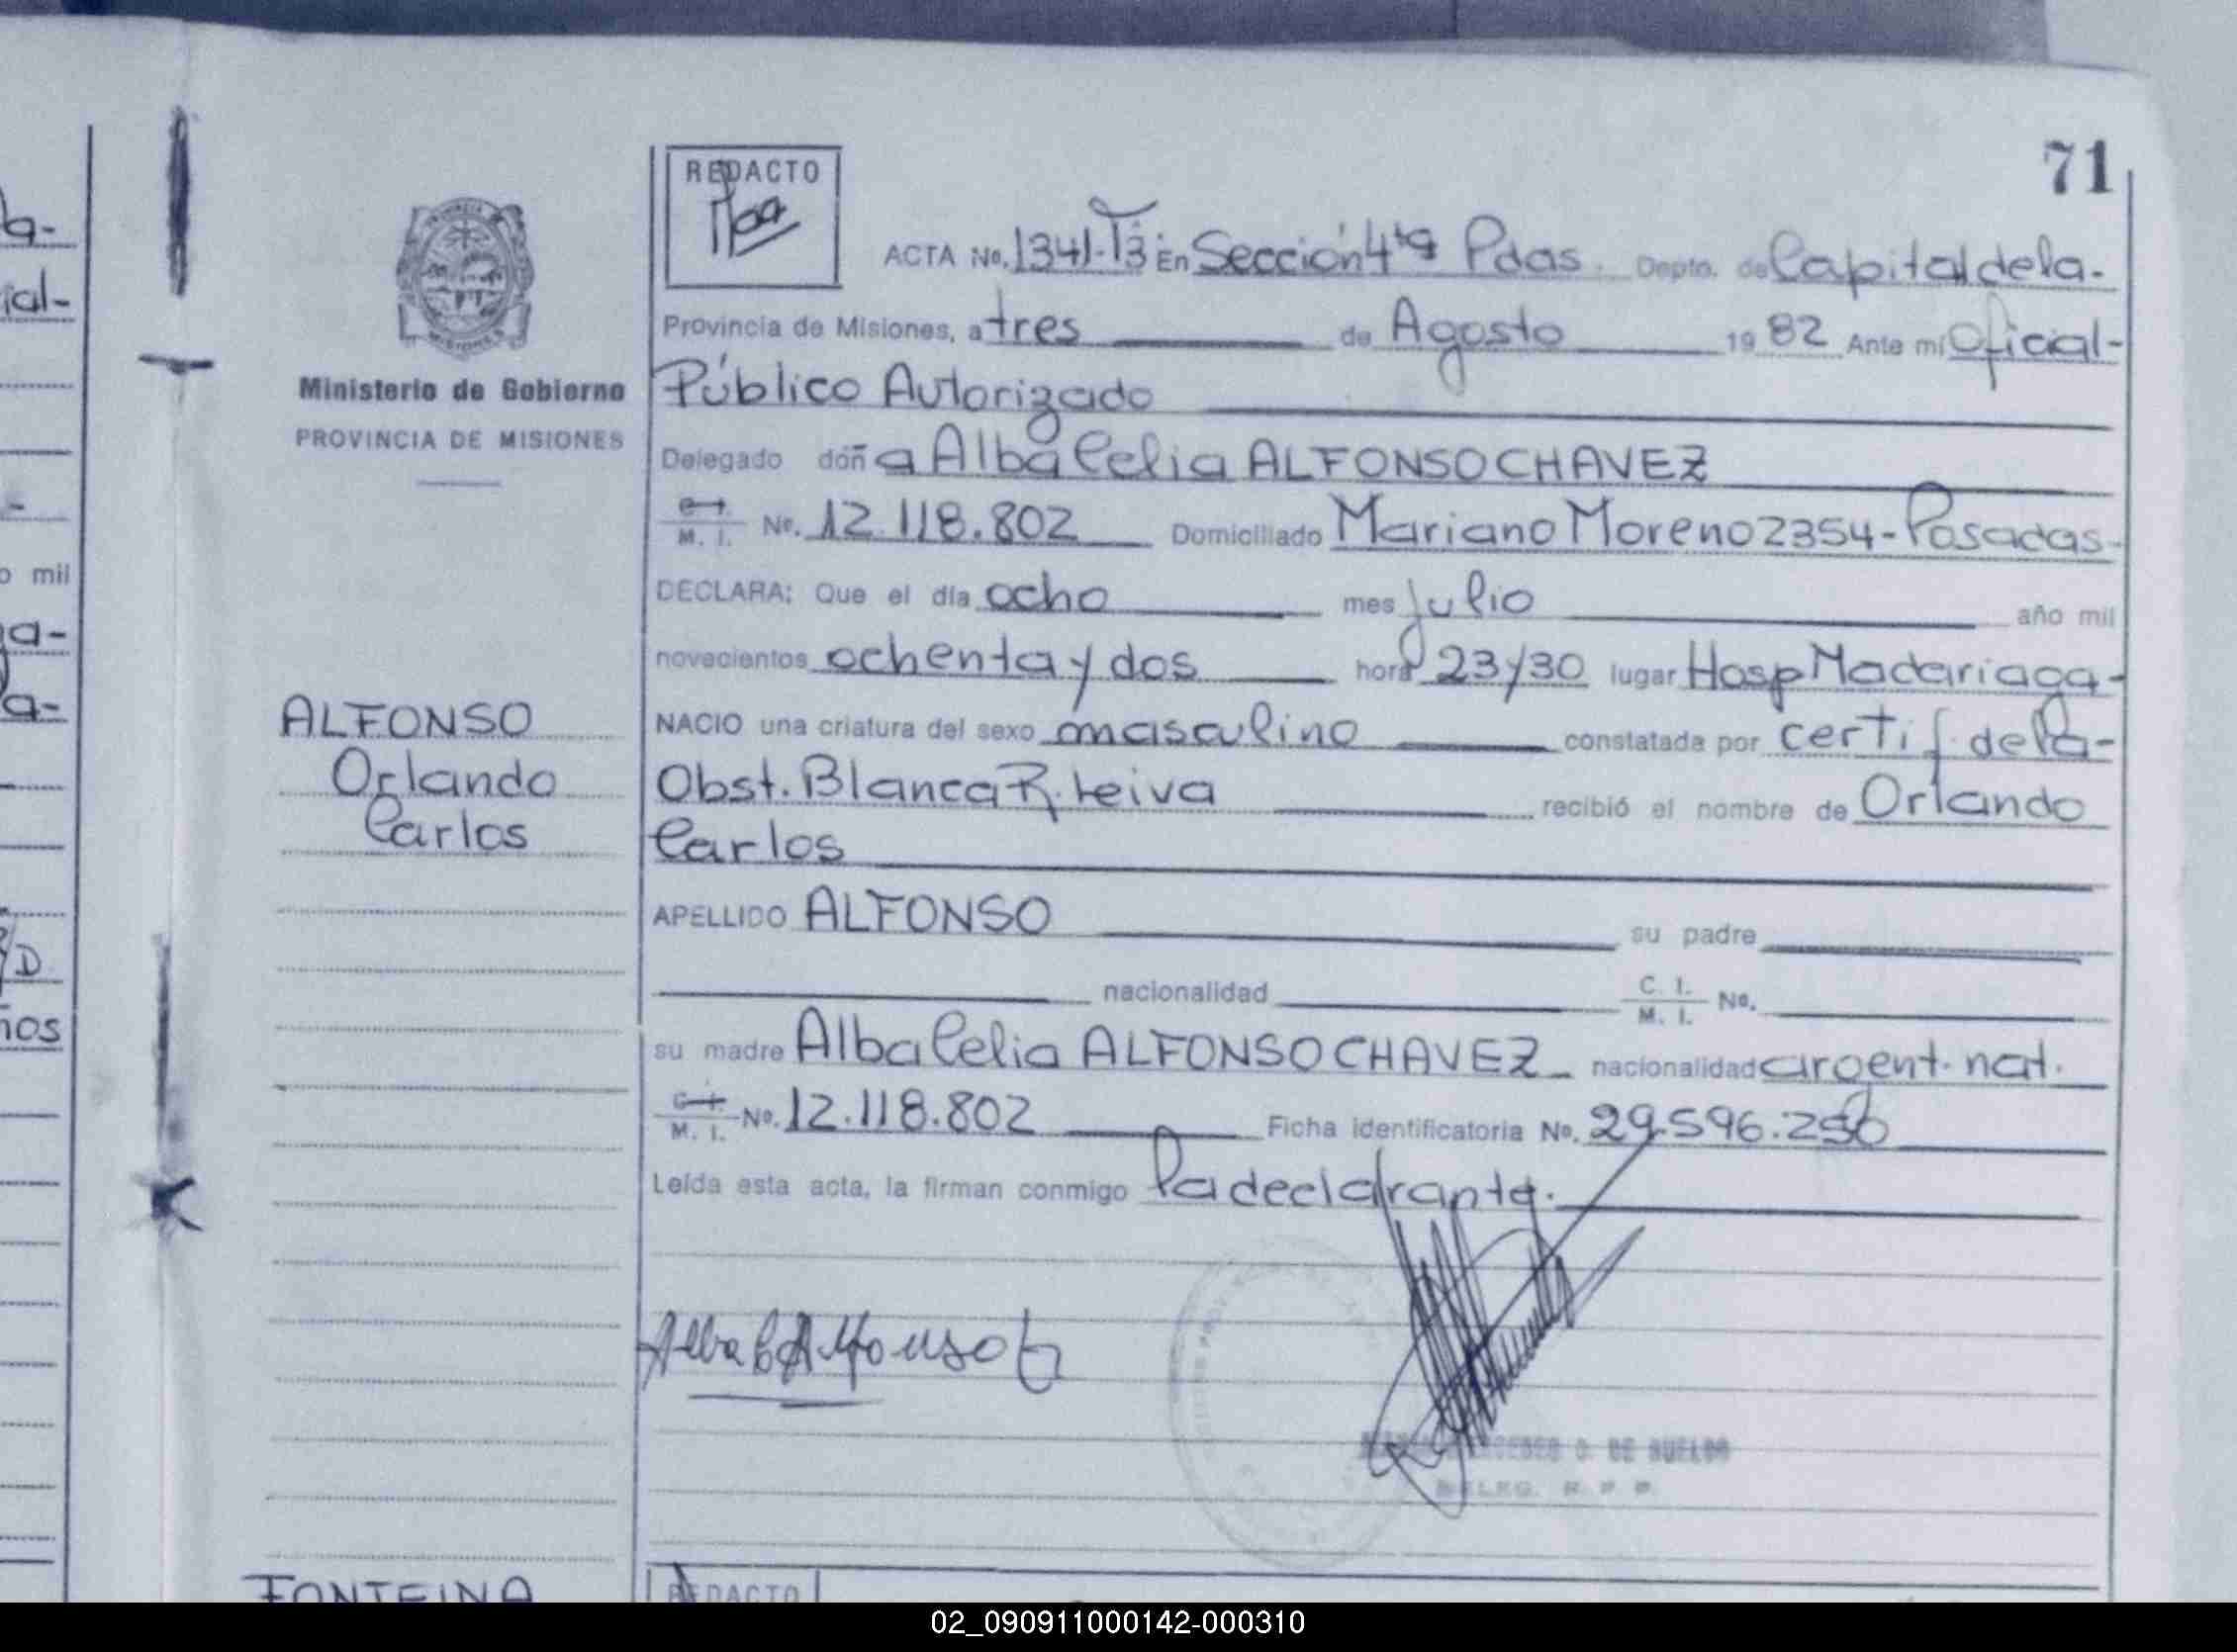 71
REDACTO
ACTA No. 1341-Tº3 En Sección 4ta Pdas. Depto. de Capital de la-
Provincia de Misiones, a tres de Agosto 1982 Ante mí Oficial-
Público Autorizado
Ministerio de Gobierno
PROVINCIA DE MISIONES
Delegado doña Alba Celia ALFONSO CHAVEZ
C. I. M. I. No. 12.118.802 Domiciliado Mariano Moreno 2354-Posadas-
DECLARA: Que el día ocho mes julio año mil
novecientos ochenta y dos hora 23/30 lugar Hosp Madariaga-
ALFONSO
Orlando
Carlos
NACIO una criatura del sexo masculino constatada por certif. de la-
Obst. Blanca R. Leiva recibió el nombre de Orlando
Carlos
APELLIDO ALFONSO su padre
nacionalidad C. I. M. I. No.
su madre Alba Celia ALFONSO CHAVEZ nacionalidad argent. nat.
C. I. M. I. No. 12.118.802 Ficha identificatoria No. 29.596.256
Leída esta acta, la firman conmigo la declarante.
Alba C Alfonso
DE SUELDO
DELEG. R. P. P.
FONTEINA
REDACTO
a-
ial-
o mil
ga-
a-
D
ños
02_090911000142-000310